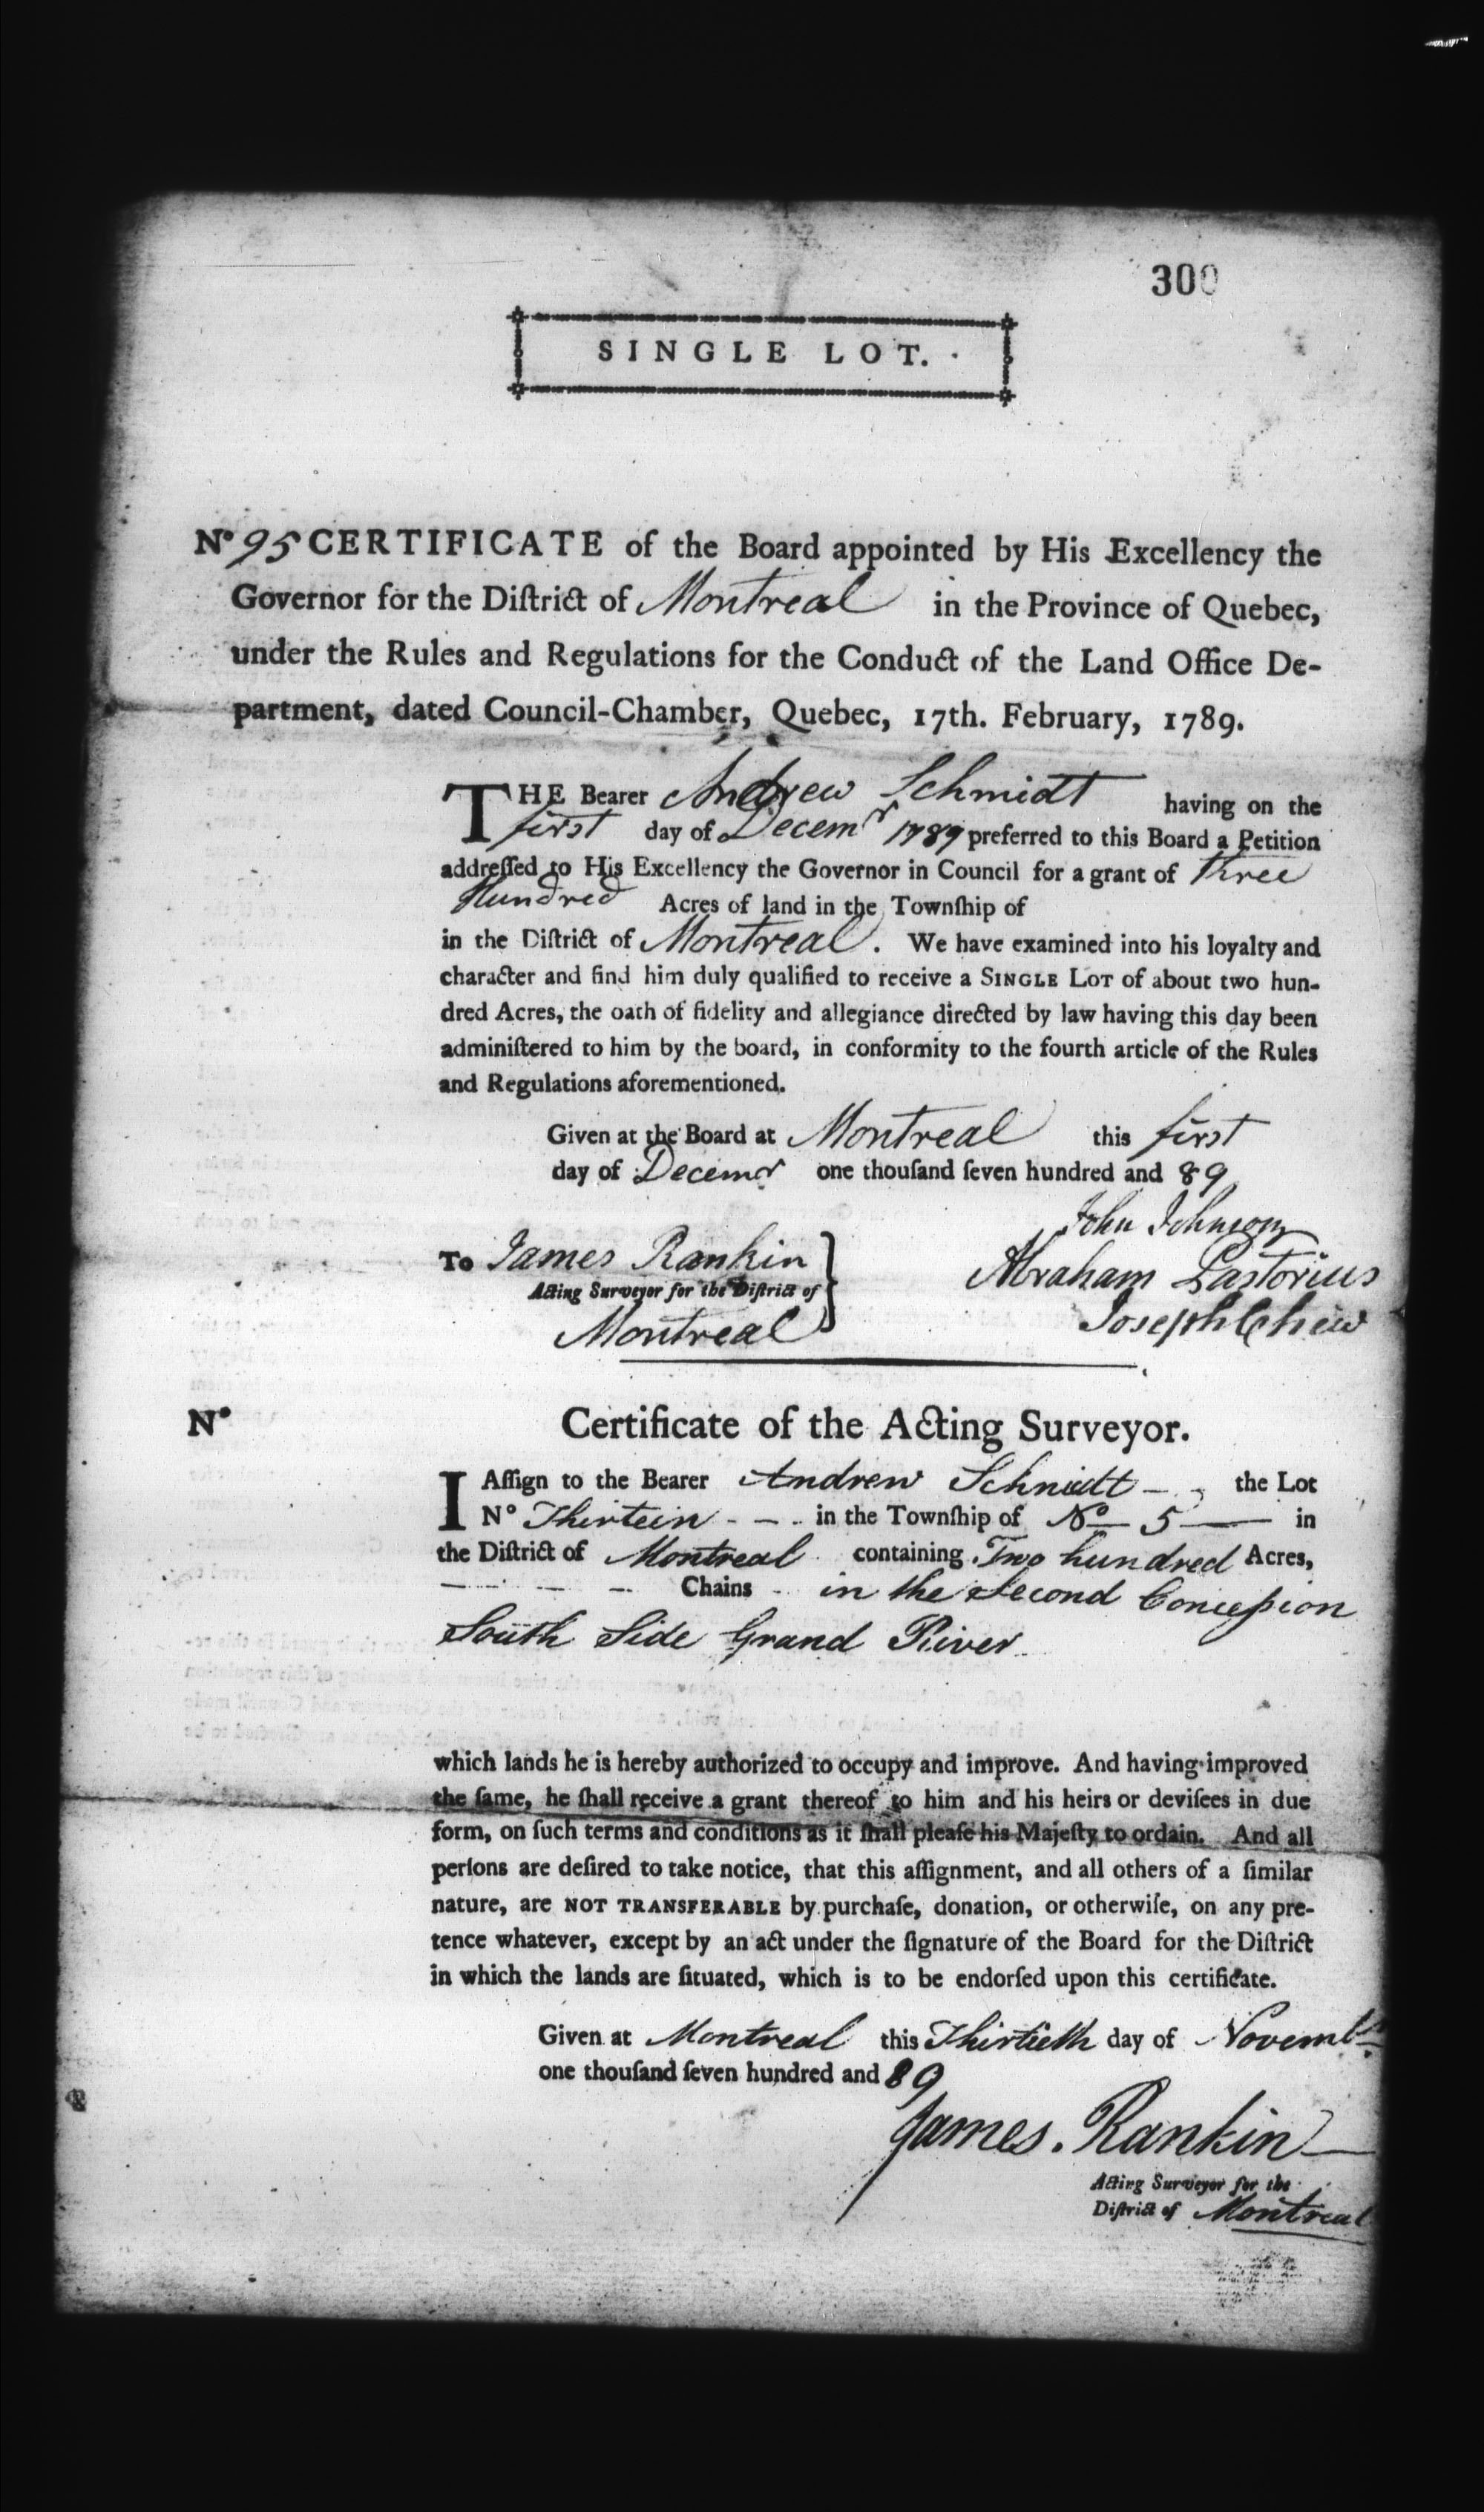 300
SINGLE LOT.
No 95 CERTIFICATE of the Board appointed by His Excellency the
Governor for the Diſtrict of Montreal in the Province of Quebec,
under the Rules and Regulations for the Conduct of the Land Office De-
partment, dated Council-Chamber, Quebec, 17th. February, 1789.
THE Bearer Andrew Schmidt having on the
first day of Decemr 1789 preferred to this Board a Petition
addreſſed to His Excellency the Governor in Council for a grant of three
Hundred Acres of land in the Townſhip of
in the Diſtrict of Montreal. We have examined into his loyalty and
character and find him duly qualified to receive a SINGLE LOT of about two hun-
dred Acres, the oath of fidelity and allegiance directed by law having this day been
adminiſtered to him by the board, in conformity to the fourth article of the Rules
and Regulations aforementioned.
Given at the Board at Montreal this first
day of Decemr one thouſand ſeven hundred and 89
John Johnson
To James Rankin
Abraham Pastorius
Acting Surveyor for the Diſtrict of
Joseph Chew
Montreal
No Certificate of the Acting Surveyor.
I Aſſign to the Bearer Andrew Schmidt - - the Lot
No Thirtein - - - in the Townſhip of No 5 — in
the Diſtrict of Montreal containing Two hundred Acres,
— - — - Chains - in the Second Conceſsion
South Side Grand River
which lands he is hereby authorized to occupy and improve. And having improved
the ſame, he ſhall receive a grant thereof to him and his heirs or deviſees in due
form, on ſuch terms and conditions as it ſhall pleaſe his Majeſty to ordain. And all
perſons are deſired to take notice, that this aſſignment, and all others of a ſimilar
nature, are NOT TRANSFERABLE by purchaſe, donation, or otherwiſe, on any pre-
tence whatever, except by an act under the ſignature of the Board for the Diſtrict
in which the lands are ſituated, which is to be endorſed upon this certificate.
Given at Montreal this Thirtieth day of Novembr
one thouſand ſeven hundred and 89
James. Rankin
Acting Surveyor for the
Diſtrict of Montreal